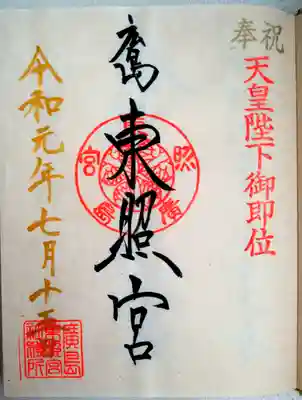 奉祝
天皇陛下御即位
東照宮
照宮
廣島
令和元年七月十五日
廣島
東照宮